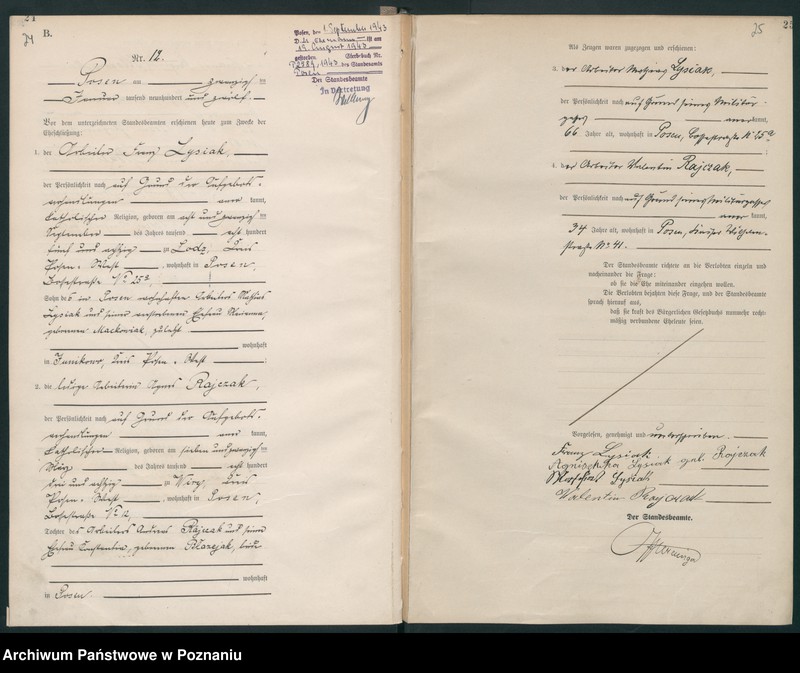 24
B.
Nr. 12.
Posen, den 1. September 1943
ist am
19. August 1943
gestorben Sterbebuch Nr.
1943 des Standesamts
Posen
Der Standesbeamte
In Vertretung
Posen am zwanzig
Januar tausend neunhundert und zwölf.
Vor dem unterzeichneten Standesbeamten erschienen heute zum Zwecke der
Eheschließung:
1. der Arbeiter Franz Lysiak,
der Persönlichkeit nach auf Grund der Aufgebots-
verhandlungen anerkannt,
katholischer Religion, geboren am acht und zwanzig
September des Jahres tausend acht hundert
fünf und achtzig in Lodz, Kreis
Posen-West, wohnhaft in Posen,
Sohn des in Posen Arbeiters Mathias
Lysiak und seiner verstorbenen Ehefrau
geborenen Mackowiak, zuletzt
wohnhaft
in Junikowo, Kreis Posen-West
2. die ledige Arbeiterin Agnes Rajczak,
der Persönlichkeit nach auf Grund der Aufgebots-
verhandlungen anerkannt,
katholischer Religion, geboren am sieben und zwanzig
März des Jahres tausend acht hundert
drei und achtzig in Kreis
Posen-West, wohnhaft in Posen,
Tochter des Arbeiters Andreas Rajczak und seiner
Ehefrau Konstantia, geborenen beide
wohnhaft
in Posen
25
Als Zeugen waren zugezogen und erschienen:
3. der Arbeiter Mathias Lysiak,
der Persönlichkeit nach auf Grund seines Militär-
passes anerkannt,
66 Jahre alt, wohnhaft in Posen,
4. der Arbeiter Valentin Rajczak,
der Persönlichkeit nach auf Grund seines Militärpasses
anerkannt,
34 Jahre alt, wohnhaft in Posen, Kaiser Wilhelm-
straße Nr. 41.
Der Standesbeamte richtete an die Verlobten einzeln und
nacheinander die Frage:
ob sie die Ehe miteinander eingehen wollen.
Die Verlobten bejahten diese Frage, und der Standesbeamte
sprach hierauf aus,
daß sie kraft des Bürgerlichen Gesetzbuchs nunmehr recht-
mäßig verbundene Eheleute seien.
Vorgelesen, genehmigt und unterschrieben.
Franz Lysiak
Agnischka Lysiak geb. Rajczak
Mathias Lysiak
Valentin Rajczak
Der Standesbeamte.
Archiwum Państwowe w Poznaniu